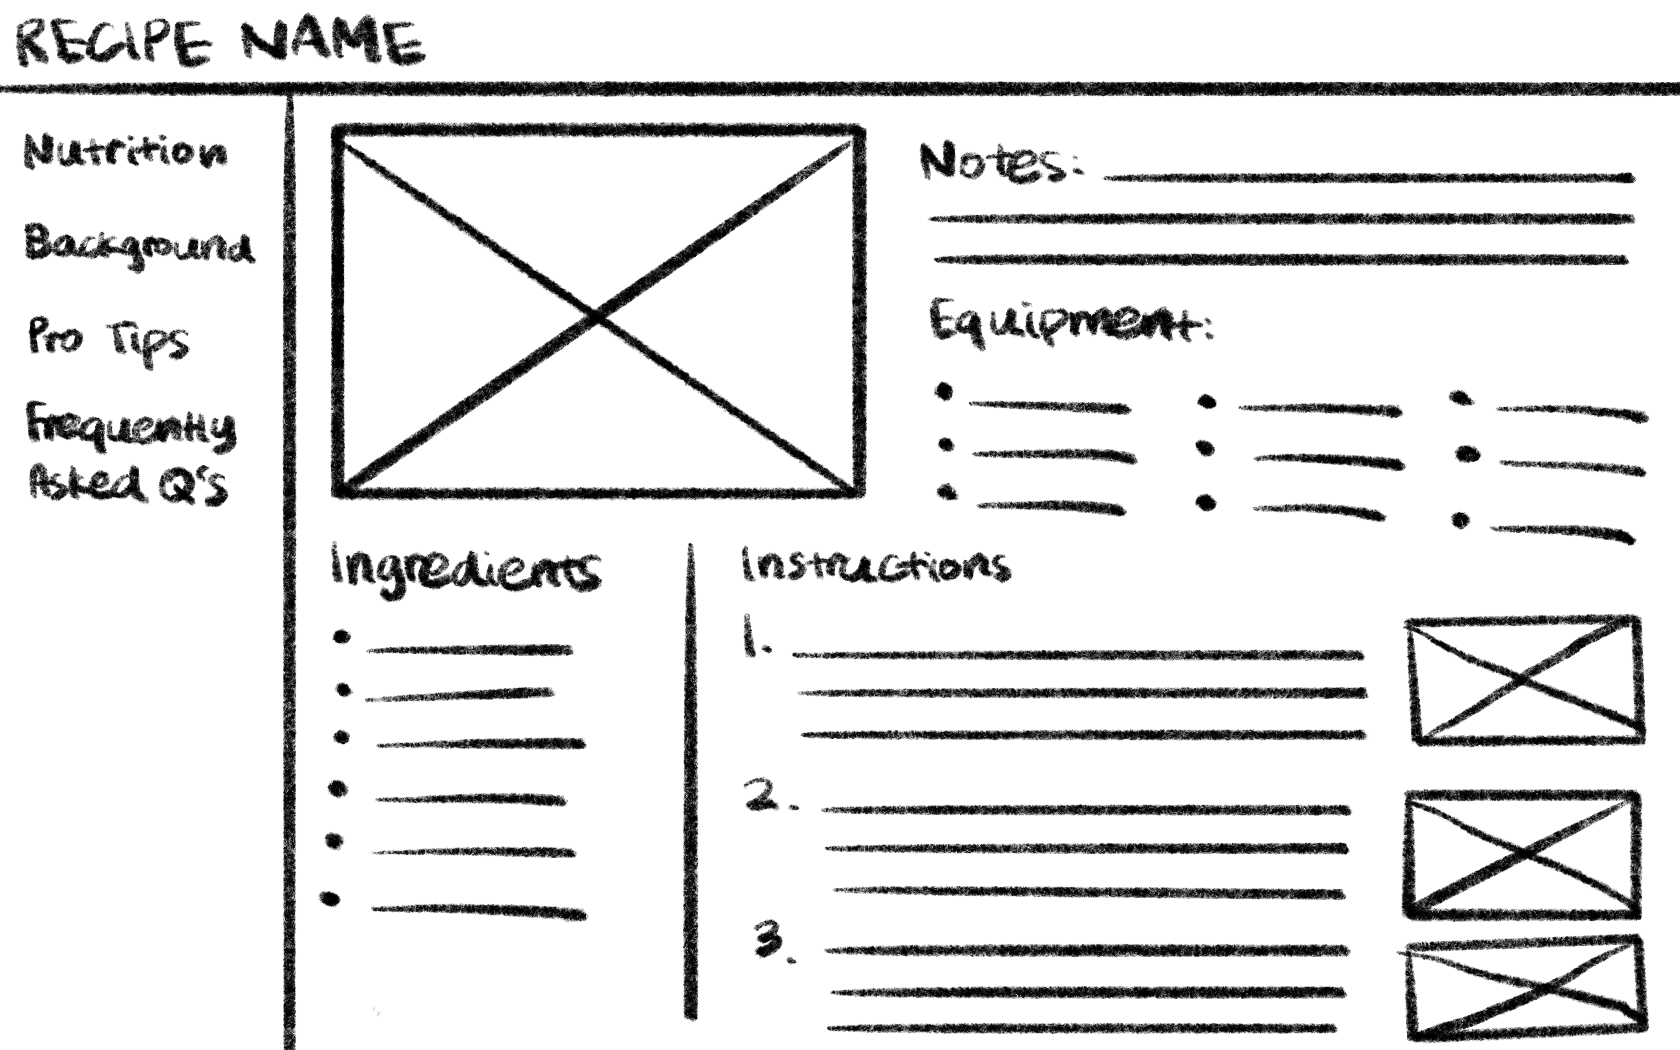 RECIPE NAME
Nutrition
Background
Pro Tips
Frequently
Asked Q's
Notes:
Equipment:
Ingredients
Instructions
1.
2.
3.